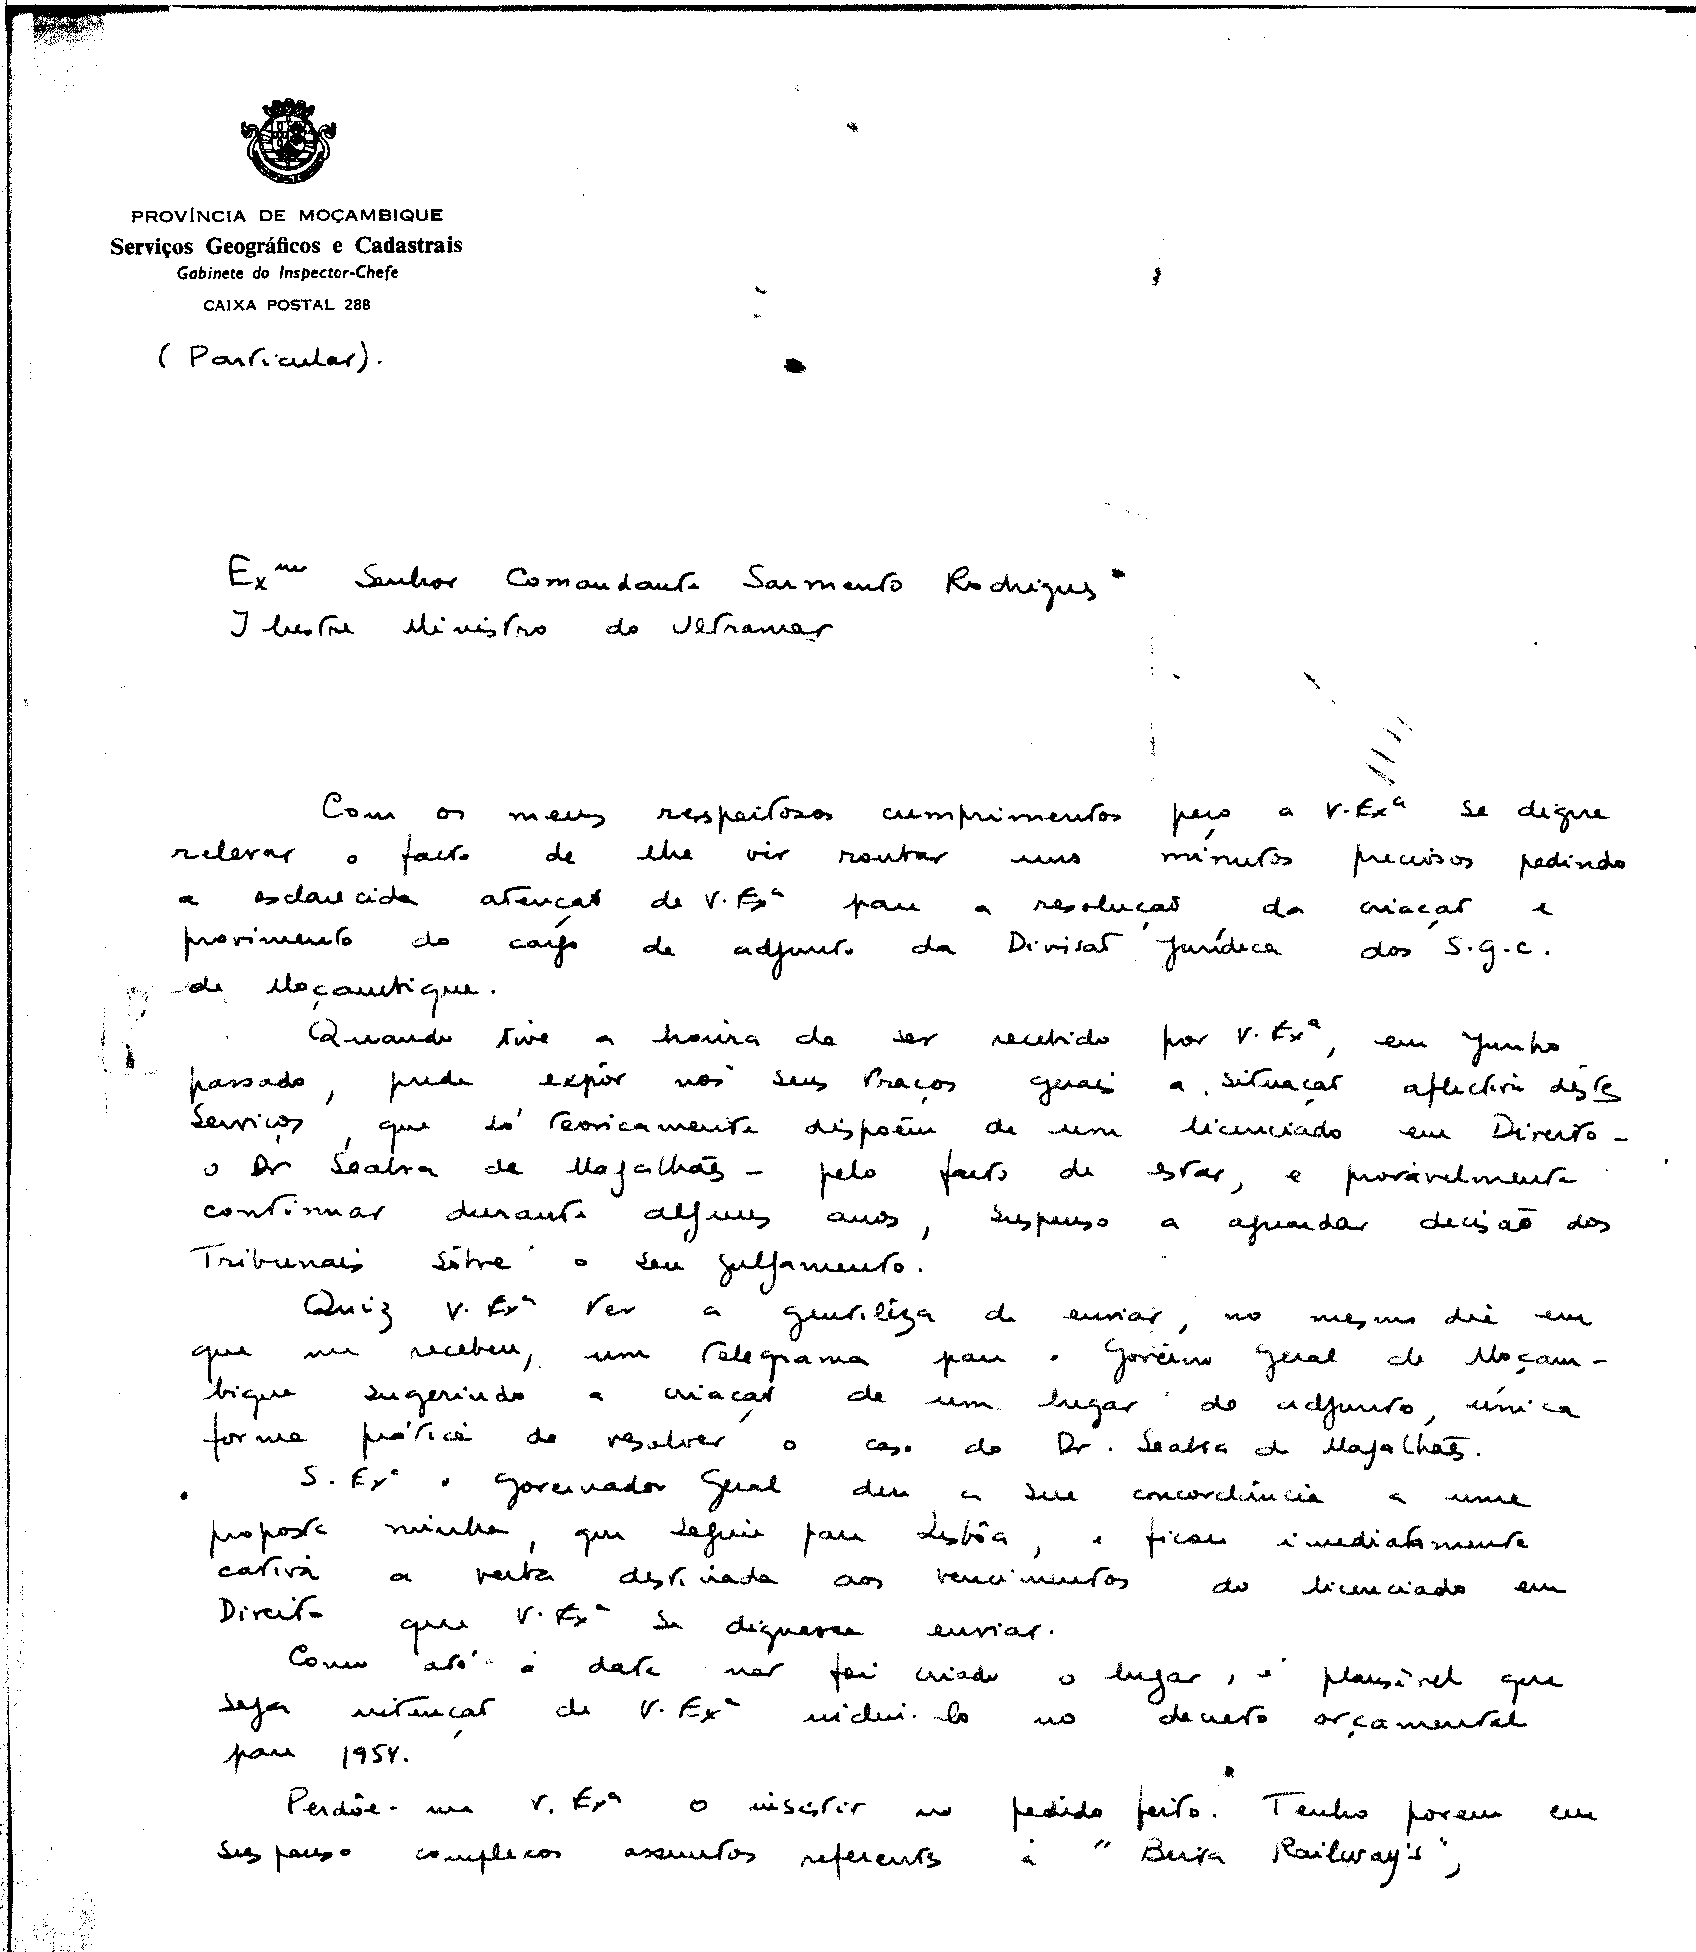 PROVÍNCIA DE MOÇAMBIQUE
Serviços Geográficos e Cadastrais
Gabinete do Inspector-Chefe
CAIXA POSTAL 288
(Particular).
Exmo Senhor Comandante Sarmento Rodrigues
Ilustre Ministro do Ultramar
Com os meus respeitosos cumprimentos peço a V.Exª se digne
relevar o facto de lhe vir roubar uns minutos preciosos pedindo
a esclarecida atenção de V.Exª para a resolução da criação e
provimento do cargo de adjunto da Divisão Jurídica dos S.G.C.
de Moçambique.
Quando tive a honra de ser recebido por V.Exª, em Junho
passado, pude expôr nos seus traços gerais a situação aflectiva dêstes
Serviços, que só teoricamente dispoêm de um licenciado em Direito -
o Dr Seabra de Magalhães - pelo facto de estar, e provàvelmente
continuar durante alguns anos, suspenso a aguardar decisão dos
Tribunais sôbre o seu julgamento.
Quiz V.Exª ter a gentilêza de enviar, no mesmo dia em
que me recebeu, um telegrama para o Govêrno Geral de Moçam-
bique sugerindo a criação de um lugar de adjunto, única
forma prática de resolver o caso do Dr. Seabra de Magalhães.
S. Exª o Governador Geral deu a sua concordância a uma
proposta minha, que seguiu para Lisbôa, e ficou imediatamente
cativa a verba destinada aos vencimentos do licenciado em
Direito que V.Exª se dignasse enviar.
Como até à data não foi criado o lugar, é plausível que
seja intenção de V.Exª inclui-lo no decreto orçamental
para 1954.
Perdôe-me V.Exª o insistir no pedido feito. Tenho porem em
suspenso complexos assuntos referentes à "Beira Railway's",